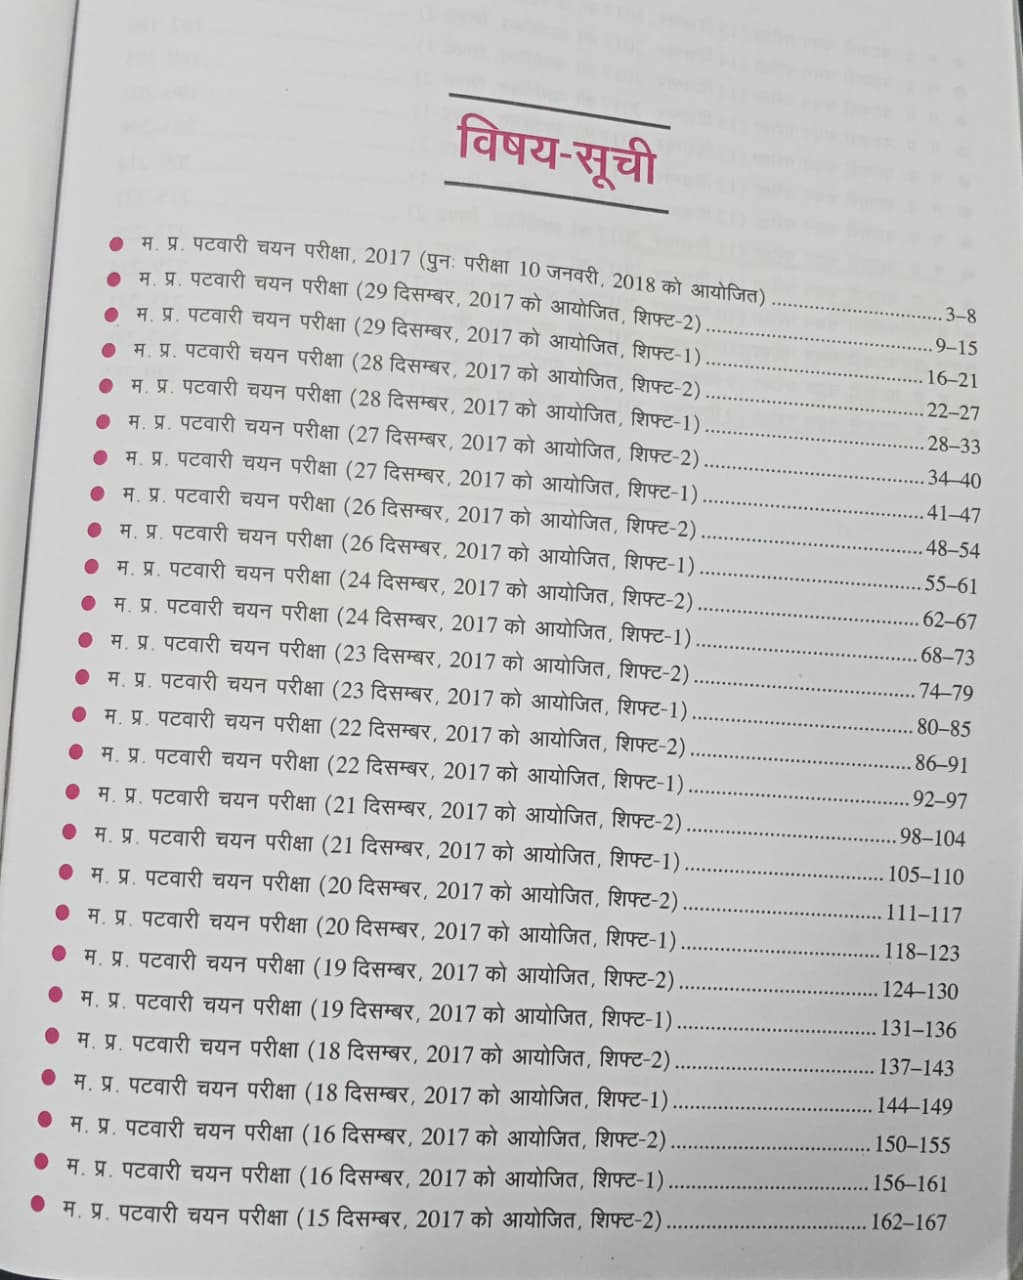 विषय-सूची
● म. प्र. पटवारी चयन परीक्षा, 2017 (पुनः परीक्षा 10 जनवरी, 2018 को आयोजित) ........................ 3–8
● म. प्र. पटवारी चयन परीक्षा (29 दिसम्बर, 2017 को आयोजित, शिफ्ट-2) ........................ 9–15
● म. प्र. पटवारी चयन परीक्षा (29 दिसम्बर, 2017 को आयोजित, शिफ्ट-1) ........................ 16–21
● म. प्र. पटवारी चयन परीक्षा (28 दिसम्बर, 2017 को आयोजित, शिफ्ट-2) ........................ 22–27
● म. प्र. पटवारी चयन परीक्षा (28 दिसम्बर, 2017 को आयोजित, शिफ्ट-1) ........................ 28–33
● म. प्र. पटवारी चयन परीक्षा (27 दिसम्बर, 2017 को आयोजित, शिफ्ट-2) ........................ 34–40
● म. प्र. पटवारी चयन परीक्षा (27 दिसम्बर, 2017 को आयोजित, शिफ्ट-1) ........................ 41–47
● म. प्र. पटवारी चयन परीक्षा (26 दिसम्बर, 2017 को आयोजित, शिफ्ट-2) ........................ 48–54
● म. प्र. पटवारी चयन परीक्षा (26 दिसम्बर, 2017 को आयोजित, शिफ्ट-1) ........................ 55–61
● म. प्र. पटवारी चयन परीक्षा (24 दिसम्बर, 2017 को आयोजित, शिफ्ट-2) ........................ 62–67
● म. प्र. पटवारी चयन परीक्षा (24 दिसम्बर, 2017 को आयोजित, शिफ्ट-1) ........................ 68–73
● म. प्र. पटवारी चयन परीक्षा (23 दिसम्बर, 2017 को आयोजित, शिफ्ट-2) ........................ 74–79
● म. प्र. पटवारी चयन परीक्षा (23 दिसम्बर, 2017 को आयोजित, शिफ्ट-1) ........................ 80–85
● म. प्र. पटवारी चयन परीक्षा (22 दिसम्बर, 2017 को आयोजित, शिफ्ट-2) ........................ 86–91
● म. प्र. पटवारी चयन परीक्षा (22 दिसम्बर, 2017 को आयोजित, शिफ्ट-1) ........................ 92–97
● म. प्र. पटवारी चयन परीक्षा (21 दिसम्बर, 2017 को आयोजित, शिफ्ट-2) ........................ 98–104
● म. प्र. पटवारी चयन परीक्षा (21 दिसम्बर, 2017 को आयोजित, शिफ्ट-1) ........................ 105–110
● म. प्र. पटवारी चयन परीक्षा (20 दिसम्बर, 2017 को आयोजित, शिफ्ट-2) ........................ 111–117
● म. प्र. पटवारी चयन परीक्षा (20 दिसम्बर, 2017 को आयोजित, शिफ्ट-1) ........................ 118–123
● म. प्र. पटवारी चयन परीक्षा (19 दिसम्बर, 2017 को आयोजित, शिफ्ट-2) ........................ 124–130
● म. प्र. पटवारी चयन परीक्षा (19 दिसम्बर, 2017 को आयोजित, शिफ्ट-1) ........................ 131–136
● म. प्र. पटवारी चयन परीक्षा (18 दिसम्बर, 2017 को आयोजित, शिफ्ट-2) ........................ 137–143
● म. प्र. पटवारी चयन परीक्षा (18 दिसम्बर, 2017 को आयोजित, शिफ्ट-1) ........................ 144–149
● म. प्र. पटवारी चयन परीक्षा (16 दिसम्बर, 2017 को आयोजित, शिफ्ट-2) ........................ 150–155
● म. प्र. पटवारी चयन परीक्षा (16 दिसम्बर, 2017 को आयोजित, शिफ्ट-1) ........................ 156–161
● म. प्र. पटवारी चयन परीक्षा (15 दिसम्बर, 2017 को आयोजित, शिफ्ट-2) ........................ 162–167